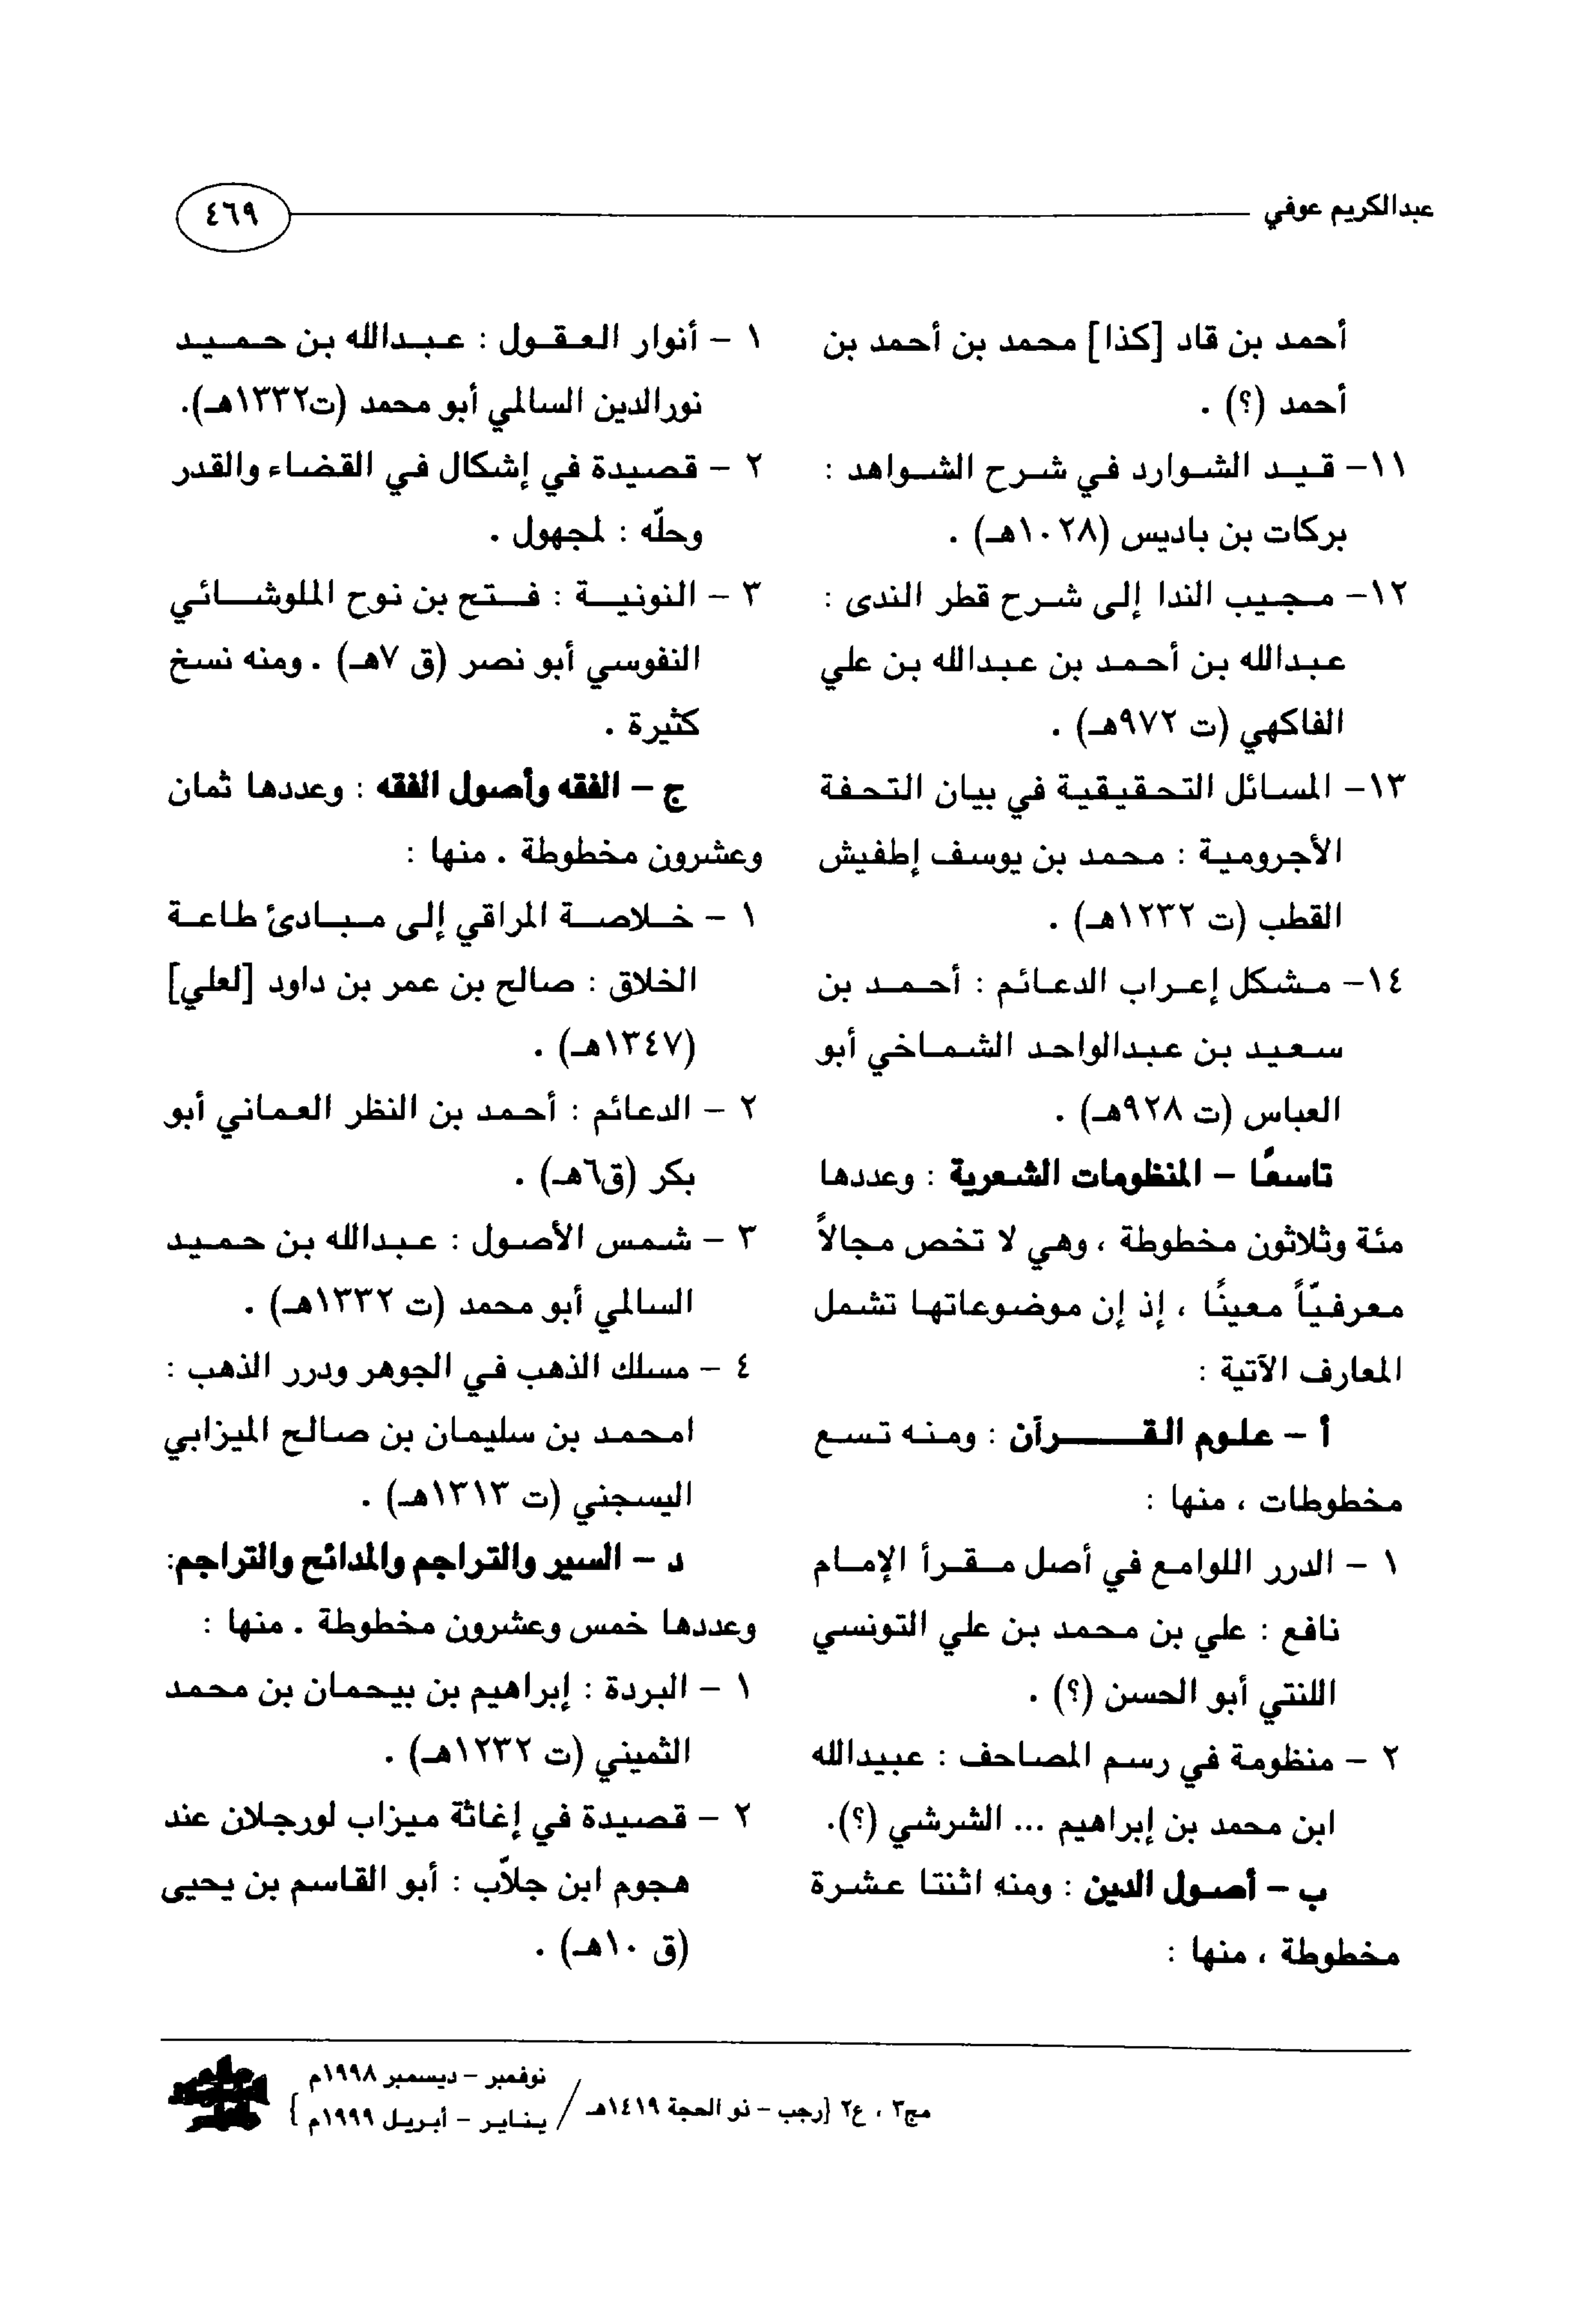 عبدالكريم عوفي
٤٦٩
أحمد بن قاد [كذا] محمد بن أحمد بن
أحمد (؟) .
١١- قيد الشوارد في شرح الشواهد :
بركات بن باديس (١٠٢٨هـ) .
١٢- مجيب الندا إلى شرح قطر الندى :
عبدالله بن أحمد بن عبدالله بن علي
الفاكهي (ت ٩٧٢هـ) .
١٣- المسائل التحقيقية في بيان التحفة
الأجرومية : محمد بن يوسف إطفيش
القطب (ت ١٢٣٢هـ) .
١٤- مشكل إعراب الدعائم : أحمد بن
سعيد بن عبدالواحد الشماخي أبو
العباس (ت ٩٢٨هـ) .
تاسعًا - المنظومات الشعرية : وعددها
مئة وثلاثون مخطوطة ، وهي لا تخص مجالاً
معرفيّاً معينًا ، إذ إن موضوعاتها تشمل
المعارف الآتية :
أ - علوم القـــرآن : ومنه تسع
مخطوطات ، منها :
١ - الدرر اللوامع في أصل مقرأ الإمام
نافع : علي بن محمد بن علي التونسي
اللنتي أبو الحسن (؟) .
٢ - منظومة في رسم المصاحف : عبيدالله
ابن محمد بن إبراهيم ... الشرشي (؟).
ب - أصول الدين : ومنه اثنتا عشرة
مخطوطة ، منها :
١ - أنوار العقول : عبدالله بن حميد
نورالدين السالمي أبو محمد (ت١٣٣٢هـ).
٢ - قصيدة في إشكال في القضاء والقدر
وحلّه : لمجهول .
٣ - النونية : فتح بن نوح الملوشائي
النفوسي أبو نصر (ق ٧هـ) . ومنه نسخ
كثيرة .
ج - الفقه وأصول الفقه : وعددها ثمان
وعشرون مخطوطة . منها :
١ - خلاصة المراقي إلى مبادئ طاعة
الخلاق : صالح بن عمر بن داود [لعلي]
(١٣٤٧هـ) .
٢ - الدعائم : أحمد بن النظر العماني أبو
بكر (ق٦هـ) .
٣ - شمس الأصول : عبدالله بن حميد
السالمي أبو محمد (ت ١٣٣٢هـ) .
٤ - مسلك الذهب في الجوهر ودرر الذهب :
امحمد بن سليمان بن صالح الميزابي
اليسجني (ت ١٣١٣هـ) .
د - السير والتراجم والمدائح والتراجم:
وعددها خمس وعشرون مخطوطة . منها :
١ - البردة : إبراهيم بن بيحمان بن محمد
الثميني (ت ١٢٣٢هـ) .
٢ - قصيدة في إغاثة ميزاب لورجلان عند
هجوم ابن جلاّب : أبو القاسم بن يحيى
(ق ١٠هـ) .
مج٣ ، ع٢ {رجب - ذو الحجة ١٤١٩هـ /
نوفمبر - ديسمبر ١٩٩٨م
يناير - أبريل ١٩٩٩م }